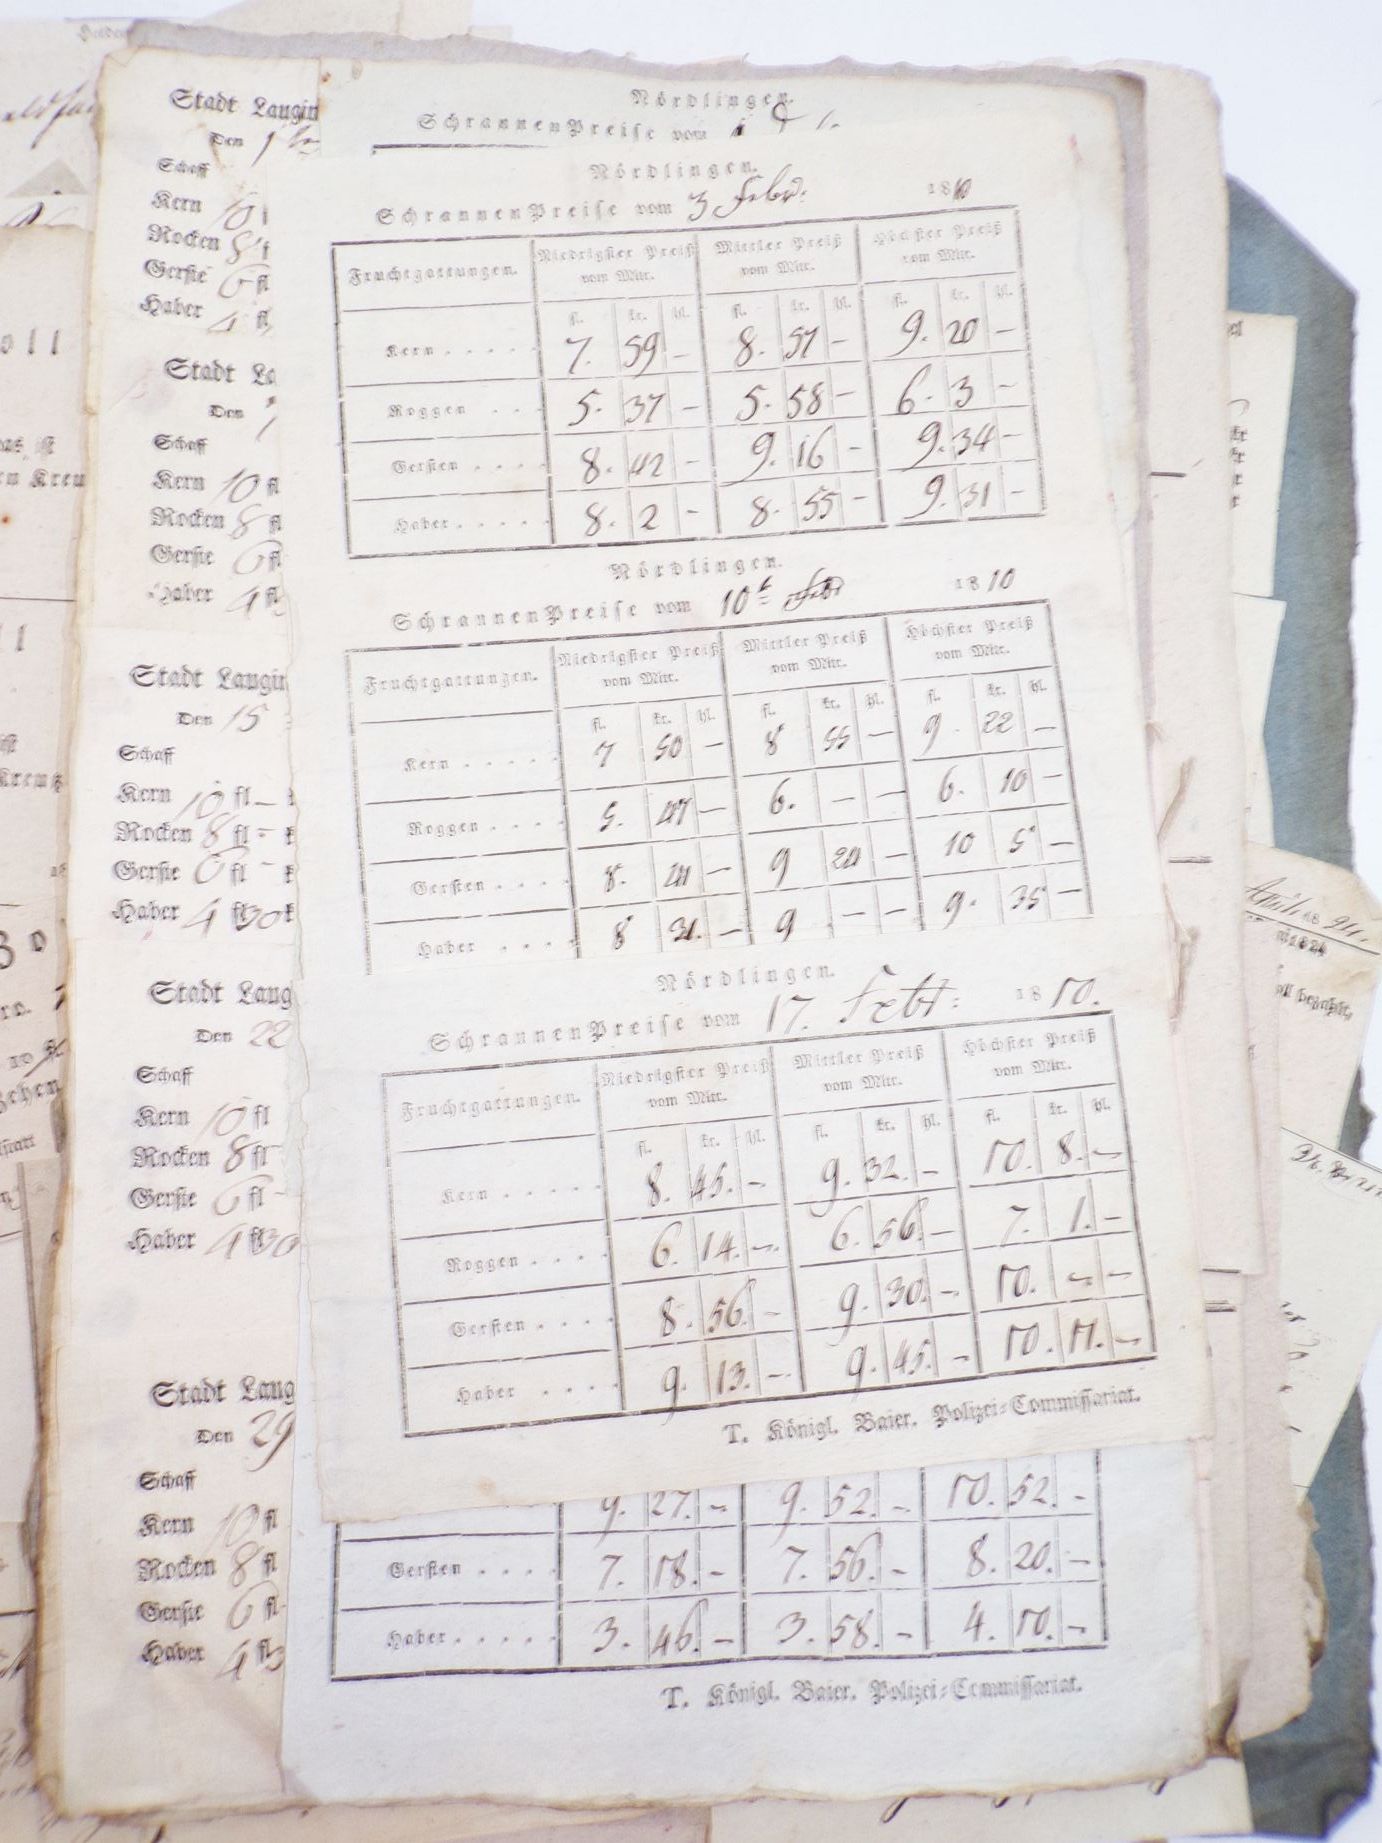 Stadt Laugin
Den
Schaff
Kern 10
Rocken 8 f
Gerste 6 fl
Haber 4 fl
Stadt La
Den
Schaff
Kern 10 fl
Rocken 8 fl
Gerste 6 fl
Haber 4 fl
Stadt Laugin
Den 15
Schaff
Kern 10 fl –
Rocken 8 fl =
Gerste 6 fl –
Haber 4 fl 30 k
Stadt Laug
Den 22
Schaff
Kern 10 fl
Rocken 8 fl
Gerste 6 fl –
Haber 4 fl 30
Stadt Laug
Den 29
Schaff
Kern 10 fl
Rocken 8 fl
Gerste 6 fl
Haber 4 fl 3
Nördlingen.
SchrannenPreise vom
Nördlingen.
SchrannenPreise vom 3 Febr: 1810
Fruchtgattungen. Niedrigster Preiß vom Mttr. Mittler Preiß vom Mttr. Höchster Preiß vom Mttr.
fl. kr. hl. fl. kr. hl. fl. kr. hl.
Kern . . . . . 7. 59 – 8. 57 – 9. 20 –
Roggen . . . 5. 37 – 5. 58 – 6. 3 –
Gersten . . . . 8. 42 – 9. 16 – 9. 34 –
Haber . . . . . 8. 2 – 8. 55 – 9. 31 –
Nördlingen.
SchrannenPreise vom 10t Feb 1810
Fruchtgattungen. Niedrigster Preiß vom Mttr. Mittler Preiß vom Mttr. Höchster Preiß vom Mttr.
fl. kr. hl. fl. kr. hl. fl. kr. hl.
Kern . . . . . 7 50 – 8 55 – 9. 22 –
Roggen . . . . 5. 47 – 6. – – 6. 10 –
Gersten . . . . 8. – 9 – 10 5 –
Haber . . . . 8 31. – 9 – – 9. 35 –
Nördlingen.
SchrannenPreise vom 17. Febr: 1810.
Fruchtgattungen. Niedrigster Preiß vom Mttr. Mittler Preiß vom Mttr. Höchster Preiß vom Mttr.
fl. kr. hl. fl. kr. hl. fl. kr. hl.
Kern . . . . . 8. 45. – 9. 32. – 10. 8. –
Roggen . . . . 6. 14. – 6. 56. – 7. 1. –
Gersten . . . . 8. 56. – 9. 30. – 10. – –
Haber . . . . 9. 13. – 9. 45. – 10. 11. –
T. Königl. Baier. Polizei-Commissariat.
9. 27. – 9. 52. – 10. 52. –
Gersten . . . . 7. 18. – 7. 56. – 8. 20. –
Haber . . . . . 3. 46. – 3. 58. – 4. 10. –
T. Königl. Baier. Polizei-Commissariat.